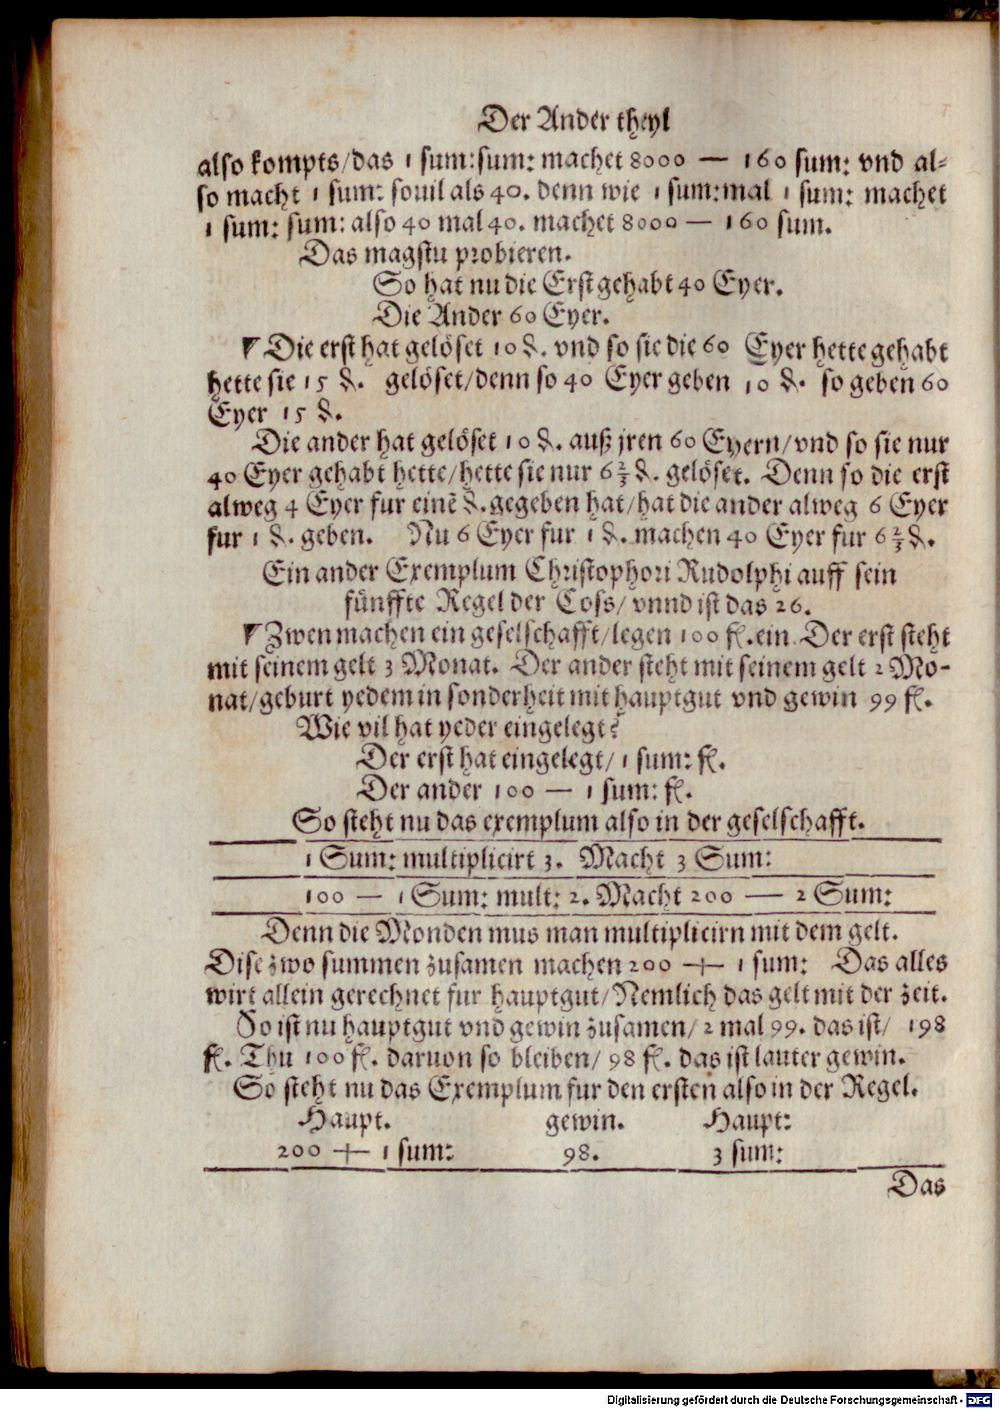 Der Ander theyl
also kompts/das 1 sum:sum: machet 8000 — 160 sum: vnd al=
so macht 1 sum: souil als 40. denn wie 1 sum:mal 1 sum: machet
1 sum: sum: also 40 mal 40. machet 8000 — 160 sum.
Das magstu probieren.
So hat nu die Erst gehabt 40 Eyer.
Die Ander 60 Eyer.
Die erst hat gelöset 10 ₰. vnd so sie die 60 Eyer hette gehabt
hette sie 15 ₰. gelöset/denn so 40 Eyer geben 10 ₰. so geben 60
Eyer 15 ₰.
Die ander hat gelöset 10 ₰. auß jren 60 Eyern/vnd so sie nur
40 Eyer gehabt hette/hette sie nur 6 2/3 ₰. gelöset. Denn so die erst
alweg 4 Eyer fur einē ₰. gegeben hat/hat die ander alweg 6 Eyer
fur 1 ₰. geben. Nu 6 Eyer fur 1 ₰. machen 40 Eyer fur 6 2/3 ₰.
Ein ander Exemplum Christophori Rudolphi auff sein
fünffte Regel der Coss/vnnd ist das 26.
Zwen machen ein geselschafft/legen 100 fl. ein. Der erst steht
mit seinem gelt 3 Monat. Der ander steht mit seinem gelt 2 Mo-
nat/geburt yedem in sonderheit mit hauptgut vnd gewin 99 fl.
Wie vil hat yeder eingelegt?
Der erst hat eingelegt/1 sum: fl.
Der ander 100 — 1 sum: fl.
So steht nu das exemplum also in der geselschafft.
1 Sum: multiplicirt 3. Macht 3 Sum:
100 — 1 Sum: mult: 2. Macht 200 — 2 Sum:
Denn die Monden mus man multiplicirn mit dem gelt.
Dise zwo summen zusamen machen 200 + 1 sum: Das alles
wirt allein gerechnet fur hauptgut/Nemlich das gelt mit der zeit.
So ist nu hauptgut vnd gewin zusamen/2 mal 99. das ist/ 198
fl. Thu 100 fl. daruon so bleiben/98 fl. das ist lauter gewin.
So steht nu das Exemplum fur den ersten also in der Regel.
Haupt. gewin. Haupt:
200 + 1 sum: 98. 3 sum:
Das
Digitalisierung gefördert durch die Deutsche Forschungsgemeinschaft - DFG